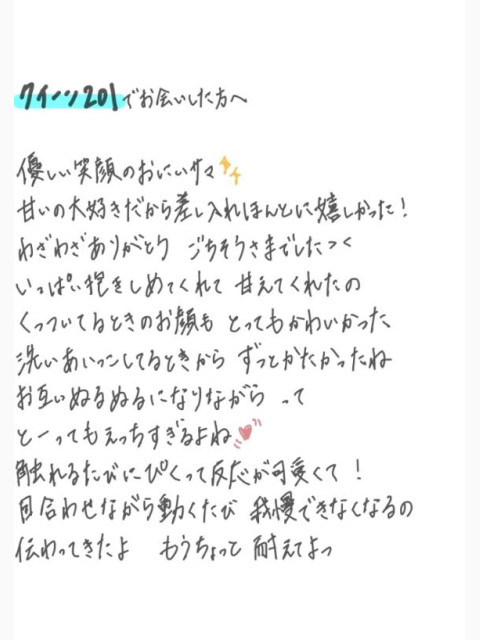 クイーン201でお会いした方へ
優しい笑顔のおにいサマ
甘いの大好きだから差し入れほんとに嬉しかった！
わざわざありがとう ごちそうさまでしたっ
いっぱい抱きしめてくれて 甘えてくれたの
くっついてるときのお顔も とってもかわいかった
洗いあいっこしてるときから ずっとかたかったね
お互いぬるぬるになりながら って
とーってもえっちすぎるよね
触れるたびにぴくって反応が可愛くて！
目合わせながら動くたび 我慢できなくなるの
伝わってきたよ もうちょっと 耐えてよっ